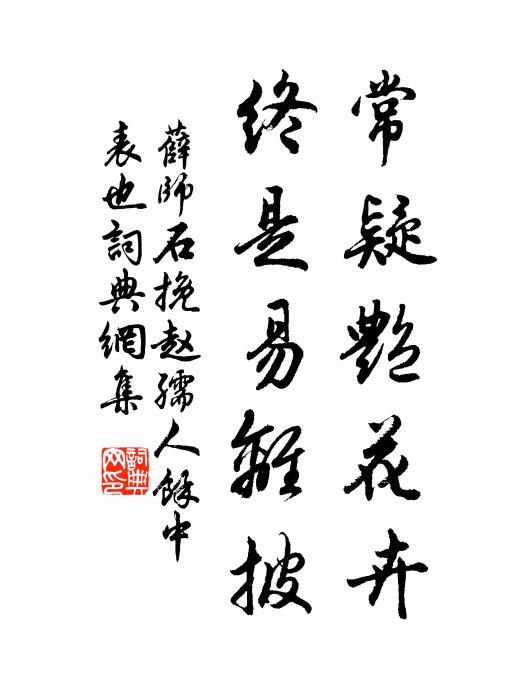 常疑艷花卉
終是易離披
薛師石挽赵孺人餘中
表也詞典網集
詞典网印